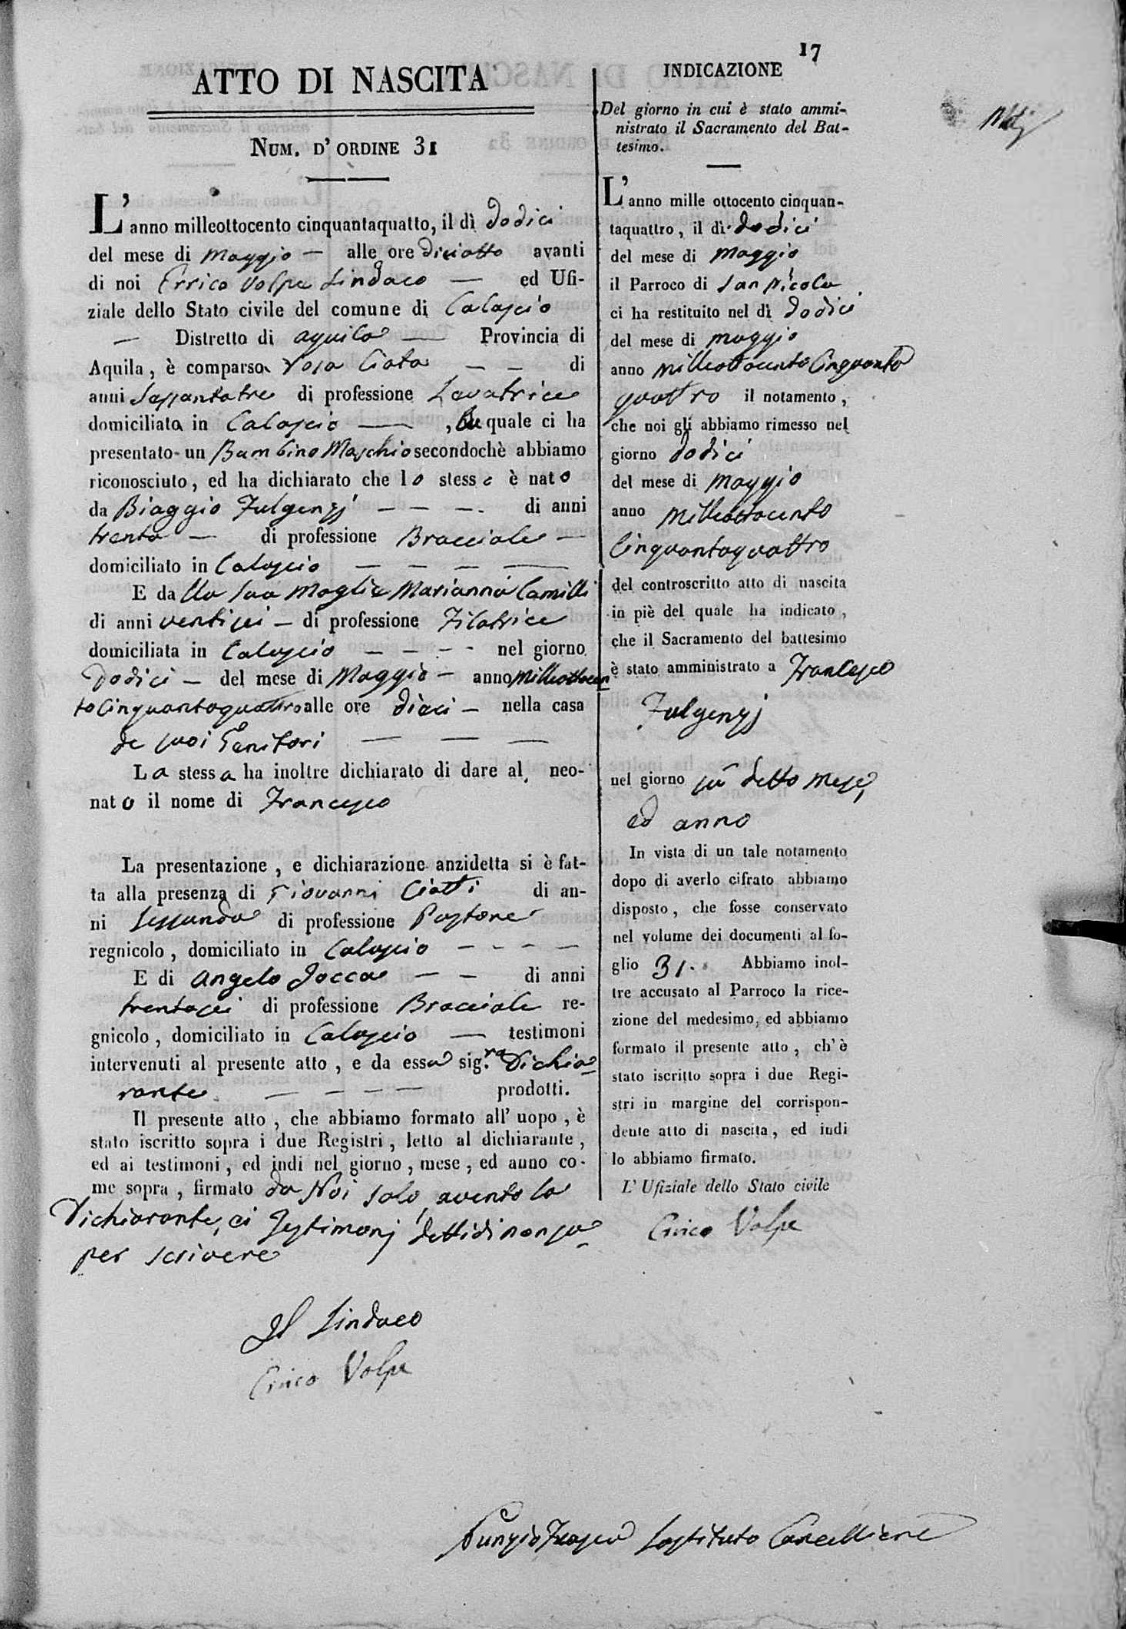 17
ATTO DI NASCITA
NUM. D' ORDINE 31
L'anno milleottocento cinquantaquatto, il dì Dodici
del mese di Maggio — alle ore diciotto avanti
di noi Errico Volpe Sindaco — ed Ufi-
ziale dello Stato civile del comune di Calascio
— Distretto di aquila — Provincia di
Aquila, è comparsa Rosa Ciota — — di
anni Sessantatre di professione Levatrice
domiciliata in Calascio — , la quale ci ha
presentato un Bambino Maschio secondochè abbiamo
riconosciuto, ed ha dichiarato che lo stesso è nato
da Biaggio Fulgenzj — — — di anni
trenta — di professione Bracciale —
domiciliato in Calascio — — — —
E dalla sua Moglie Marianna Camilli
di anni ventisei — di professione Filatrice
domiciliata in Calascio — — — - nel giorno
Dodici — del mese di Maggio — anno Milleottocen
to Cinquantaquattro alle ore dieci — nella casa
de suoi Genitori — — —
La stessa ha inoltre dichiarato di dare al neo-
nato il nome di Francesco
La presentazione, e dichiarazione anzidetta si è fat-
ta alla presenza di Giovanni Ciotti di an-
ni Sessanta di professione Pastore
regnicolo, domiciliato in Calascio — — — —
E di Angelo Jocca — — di anni
trentasei di professione Bracciale re-
gnicolo, domiciliato in Calascio — testimoni
intervenuti al presente atto, e da essa sig.ra Dichia
rante — — — — prodotti.
Il presente atto, che abbiamo formato all' uopo, è
stato iscritto sopra i due Registri, letto al dichiarante,
ed ai testimoni, ed indi nel giorno, mese, ed anno co-
me sopra, firmato da Noi solo, avento la
Dichiarante, ei Testimonj detti di non sa
per scrivere
Il Sindaco
Errico Volpe
INDICAZIONE
Del giorno in cui è stato ammi-
nistrato il Sacramento del Bat-
tesimo.
L'anno mille ottocento cinquan-
taquattro, il dì dodici
del mese di Maggio
il Parroco di San Nicola
ci ha restituito nel dì Dodici
del mese di maggio
anno milleottocento Cinquanta
quattro il notamento,
che noi gli abbiamo rimesso nel
giorno dodici
del mese di Maggio
anno Milleottocento
Cinquantaquattro
del controscritto atto di nascita
in piè del quale ha indicato,
che il Sacramento del battesimo
è stato amministrato a Francesco
Fulgenzj
nel giorno su detto mese,
ed anno
In vista di un tale notamento
dopo di averlo cifrato abbiamo
disposto, che fosse conservato
nel volume dei documenti al fo-
glio 31. Abbiamo inol-
tre accusato al Parroco la rice-
zione del medesimo, ed abbiamo
formato il presente atto, ch'è
stato iscritto sopra i due Regi-
stri in margine del corrispon-
dente atto di nascita, ed indi
lo abbiamo firmato.
L' Ufiziale dello Stato civile
Errico Volpe
Sostituto Cancelliere